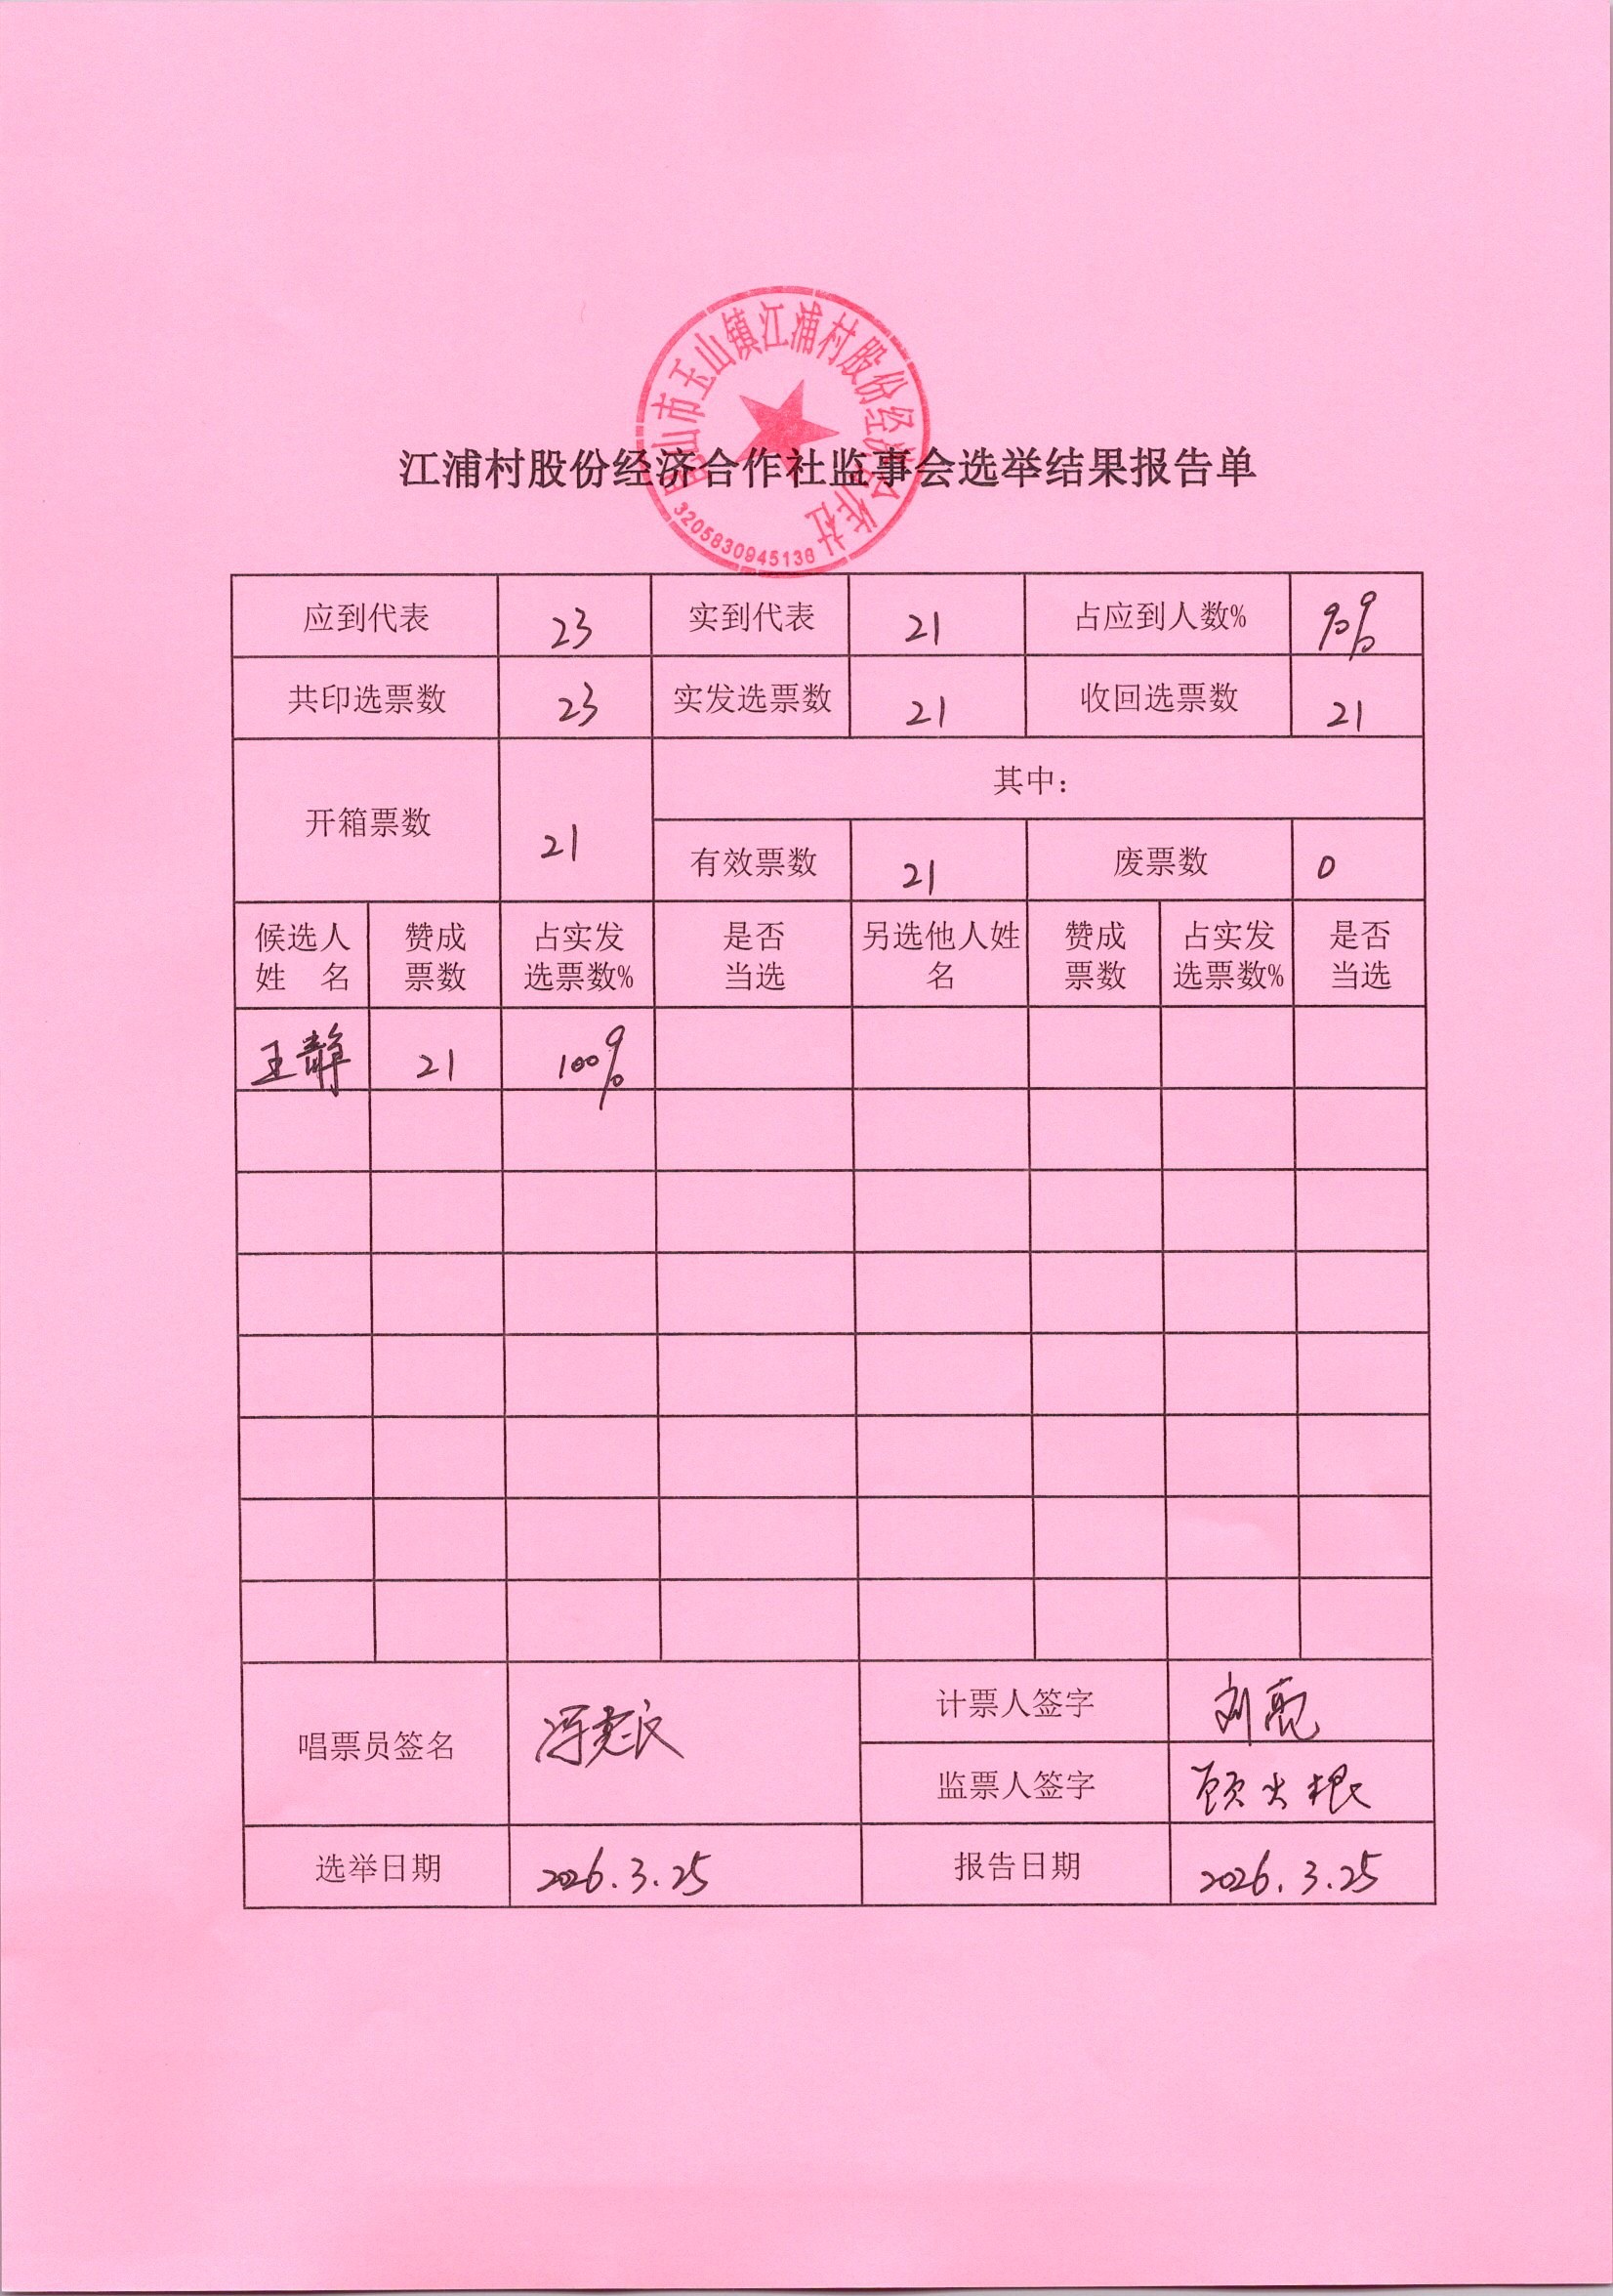 昆山市玉山镇江浦村股份经济合作社
3205830945138
江浦村股份经济合作社监事会选举结果报告单
应到代表 23 实到代表 21 占应到人数%
共印选票数 23 实发选票数 21 收回选票数 21
开箱票数 21 其中:
有效票数 21 废票数 0
候选人 赞成 占实发 是否 另选他人姓 赞成 占实发 是否
姓 名 票数 选票数% 当选 名 票数 选票数% 当选
王静 21 100%
唱票员签名 计票人签字 刘亮
监票人签字 顾火根
选举日期 2026.3.25 报告日期 2026.3.25